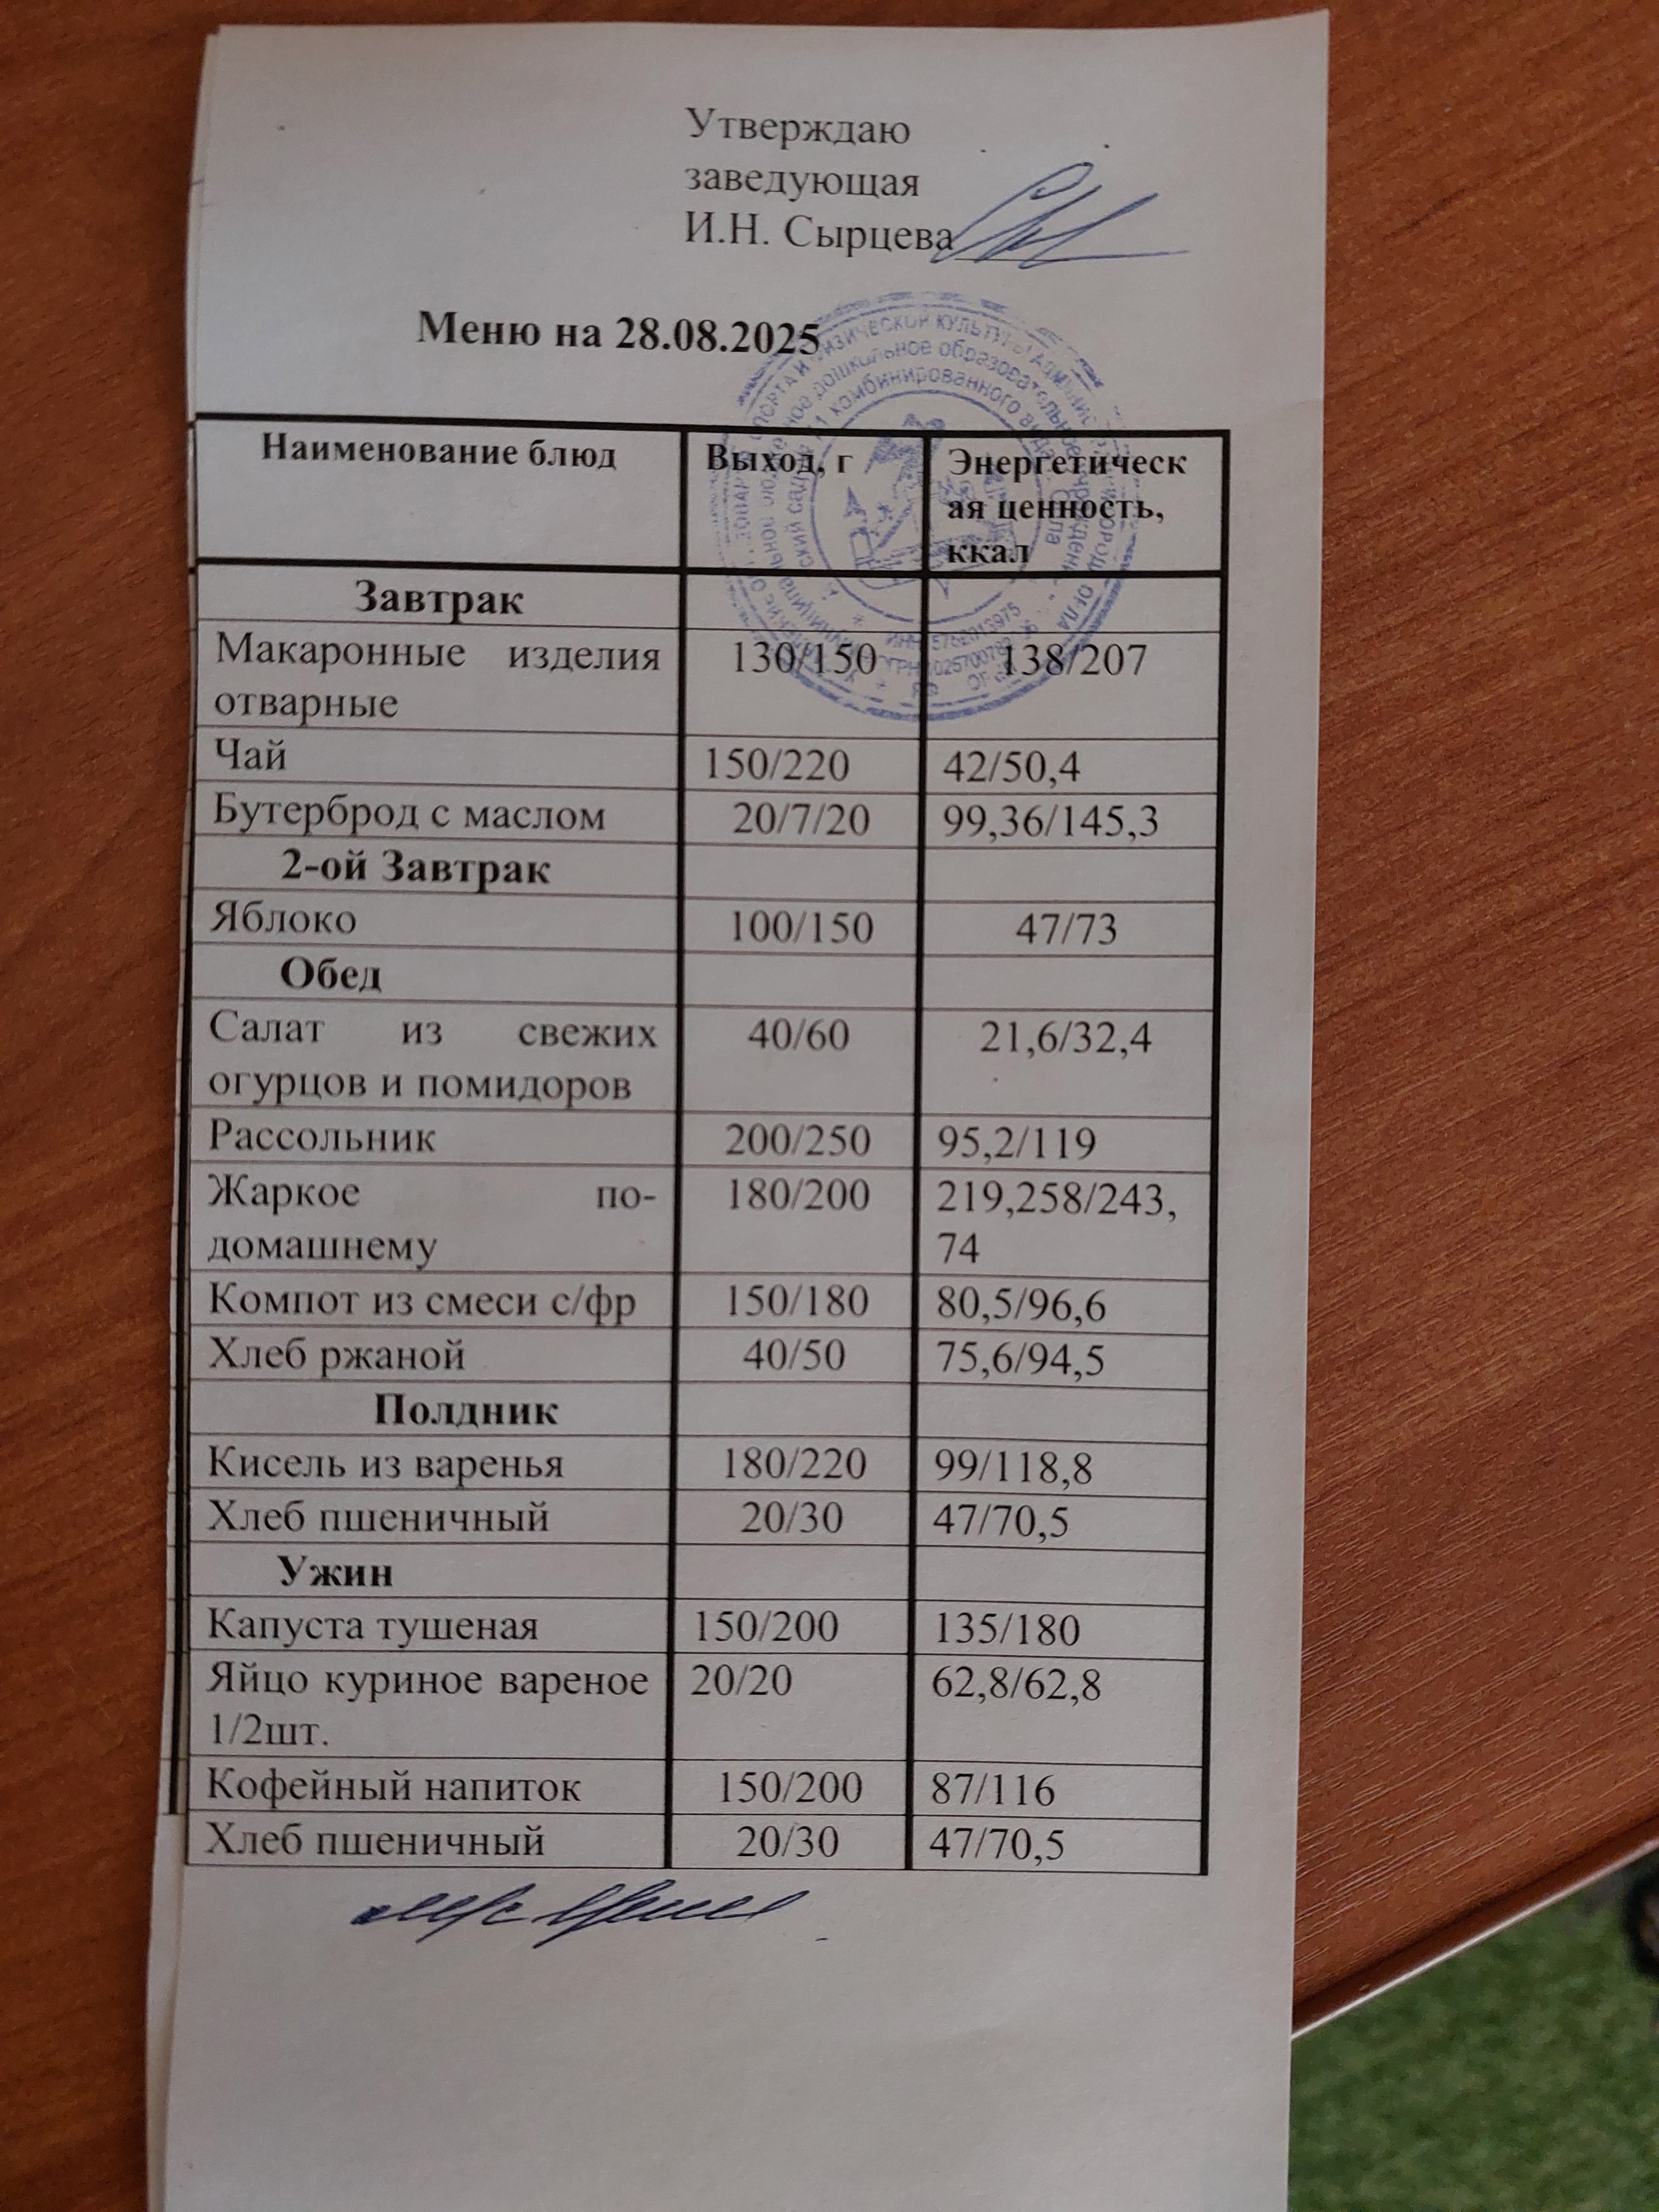 Утверждаю
заведующая
И.Н. Сырцева
Меню на 28.08.2025
Наименование блюд Выход, г Энергетическ
ая ценность,
ккал
Завтрак
Макаронные изделия 130/150 138/207
отварные
Чай 150/220 42/50,4
Бутерброд с маслом 20/7/20 99,36/145,3
2-ой Завтрак
Яблоко 100/150 47/73
Обед
Салат из свежих 40/60 21,6/32,4
огурцов и помидоров
Рассольник 200/250 95,2/119
Жаркое по- 180/200 219,258/243,
домашнему 74
Компот из смеси с/фр 150/180 80,5/96,6
Хлеб ржаной 40/50 75,6/94,5
Полдник
Кисель из варенья 180/220 99/118,8
Хлеб пшеничный 20/30 47/70,5
Ужин
Капуста тушеная 150/200 135/180
Яйцо куриное вареное 20/20 62,8/62,8
1/2шт.
Кофейный напиток 150/200 87/116
Хлеб пшеничный 20/30 47/70,5